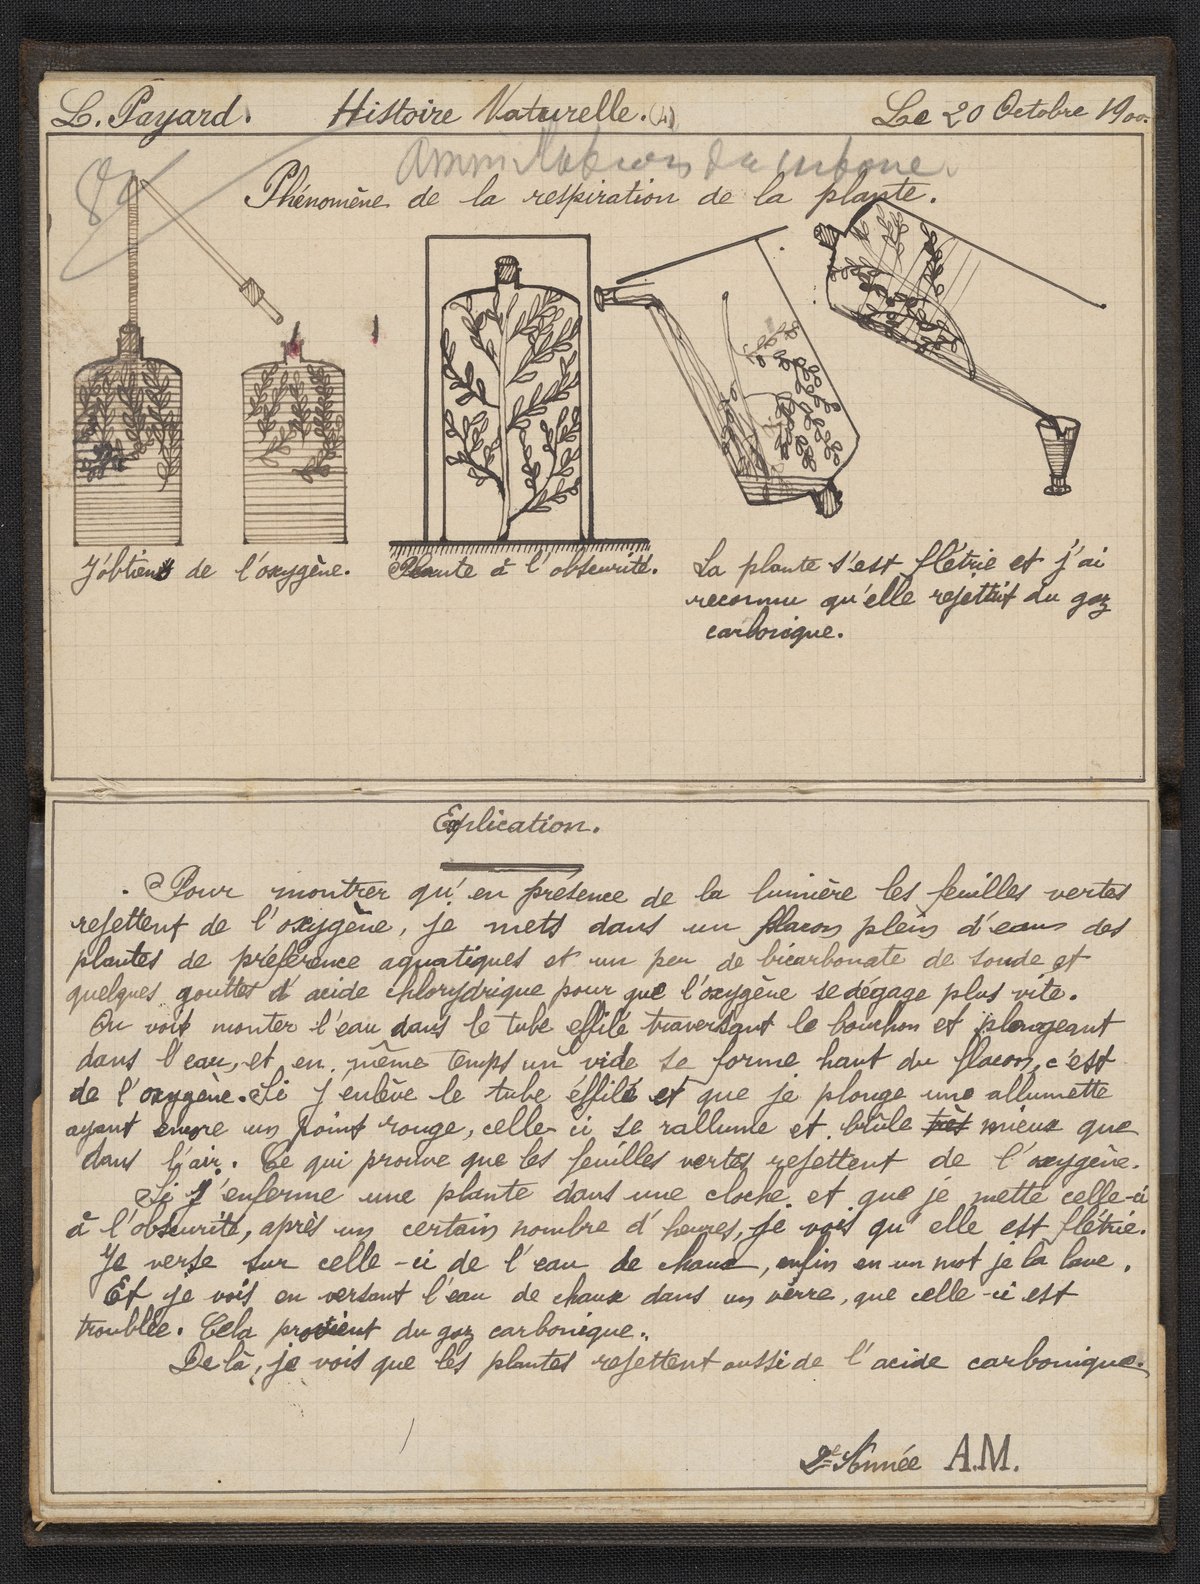 L. Payard.
Histoire Naturelle. (4)
Le 20 Octobre 1900.
du carbone.
Phénomène de la respiration de la plante.
J'obtiens de l'oxygène.
Plante à l'obscurité.
La plante s'est flétrie et j'ai
reconnu qu'elle rejettait du gaz
carbonique.
Explication.
Pour montrer qu'en présence de la lumière les feuilles vertes
rejettent de l'oxygène, je mets dans un flacon plein d'eau des
plantes de préférence aquatiques et un peu de bicarbonate de soude et
quelques gouttes d'acide chlorydrique pour que l'oxygène se dégage plus vite.
On voit monter l'eau dans le tube effilé traversant le bouchon et plongeant
dans l'eau, et en même temps un vide se forme haut du flacon, c'est
de l'oxygène. Si j'enlève le tube éffilé et que je plonge une allumette
ayant encore un point rouge, celle-ci se rallume et brûle très mieux que
dans l'air. Ce qui prouve que les feuilles vertes rejettent de l'oxygène.
Si j'enferme une plante dans une cloche et que je mette celle-ci
à l'obscurité, après un certain nombre d'heures, je vois qu'elle est flétrie.
Je verse sur celle-ci de l'eau de chaux, enfin en un mot je la lave.
Et je vois en versant l'eau de chaux dans un vèrre, que celle-ci est
troublée. Cela provient du gaz carbonique.
De là, je vois que les plantes rejettent aussi de l'acide carbonique.
2e Année A.M.